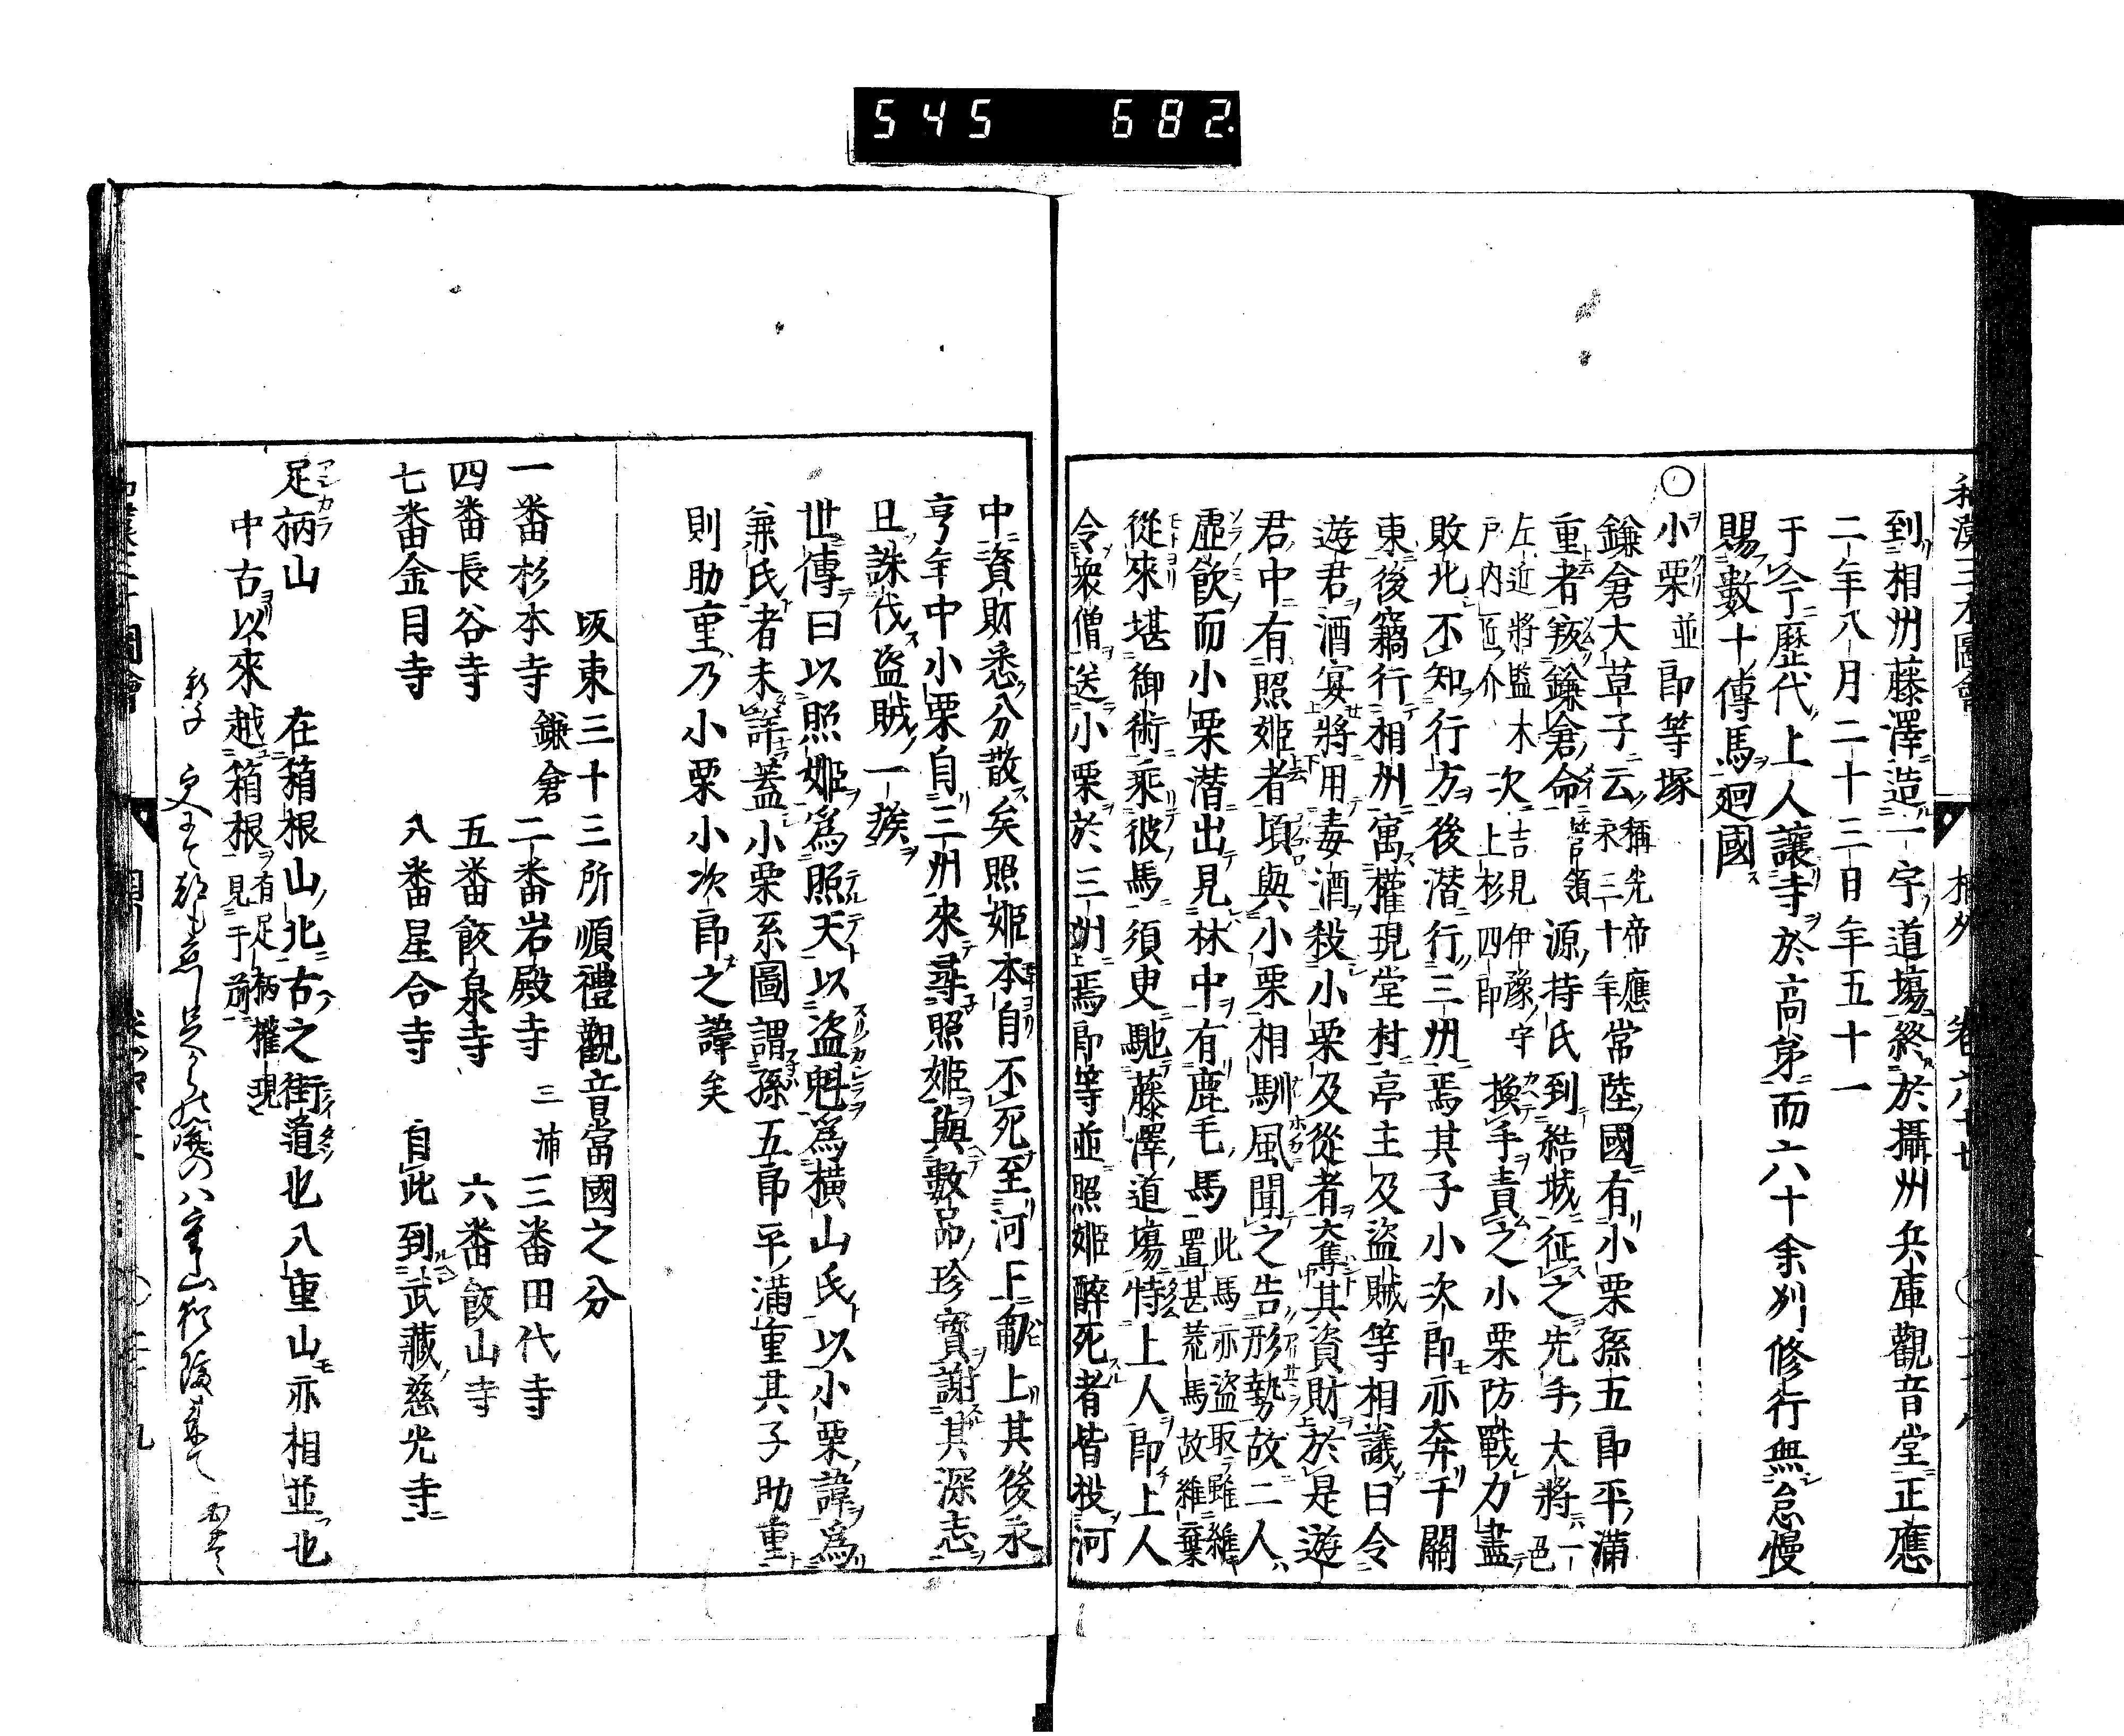 545 682.
和漢三才圖會 相州 卷六十七 〇二十八
到相州藤澤造一宇道場終於攝州兵庫觀音堂正應
二年八月二十三日年五十一
于今歷代上人讓寺於高弟而六十余州修行無怠慢
賜數十傳馬廻國
〇小栗並郎等塚
鎌倉大草子云稱光帝應永三十年常陸國有小栗孫五郎平滿
重者叛鎌倉命管領源持氏到結城征之先手大將一色
左近將監木戸內匠介次吉見伊豫守上杉四郎換手責之小栗防戰力盡
敗北不知行方後潛行三州焉其子小次郎亦奔于關
東後竊行相州寓權現堂村亭主及盜賊等相議曰令
遊君酒宴將用毒酒殺小栗及從者奪其資財於是遊
君中有照姬者頃與小栗相馴風聞之告形勢故二人
虛飮而小栗潛出見林中有鹿毛馬此馬亦盜取雖維置甚荒馬故維棄
從來堪御術乘彼馬須臾馳藤澤道場恃上人郎上人
令衆僧送小栗於三州焉郎等並照姬醉死者皆投河
中資財悉分散矣照姬本自不死至河上匍上其後永
亨年中小栗自三州來尋照姬與數品珍寶謝其深志
且誅伐盜賊一族
世傳曰以照姬爲照天以盜魁爲橫山氏以小栗諱爲
兼氏者未詳蓋小栗系圖謂孫五郎平滿重其子助重
則助重乃小栗小次郎之諱矣
坂東三十三所順禮觀音當國之分
一番杉本寺 鎌倉 二番岩殿寺 三浦 三番田代寺
四番長谷寺 五番飯泉寺 六番飯山寺
七番金目寺 八番星合寺 自此到武藏慈光寺
足柄山 在箱根山北古之街道也八重山亦相並也
中古以來越箱根有足柄權現見于前